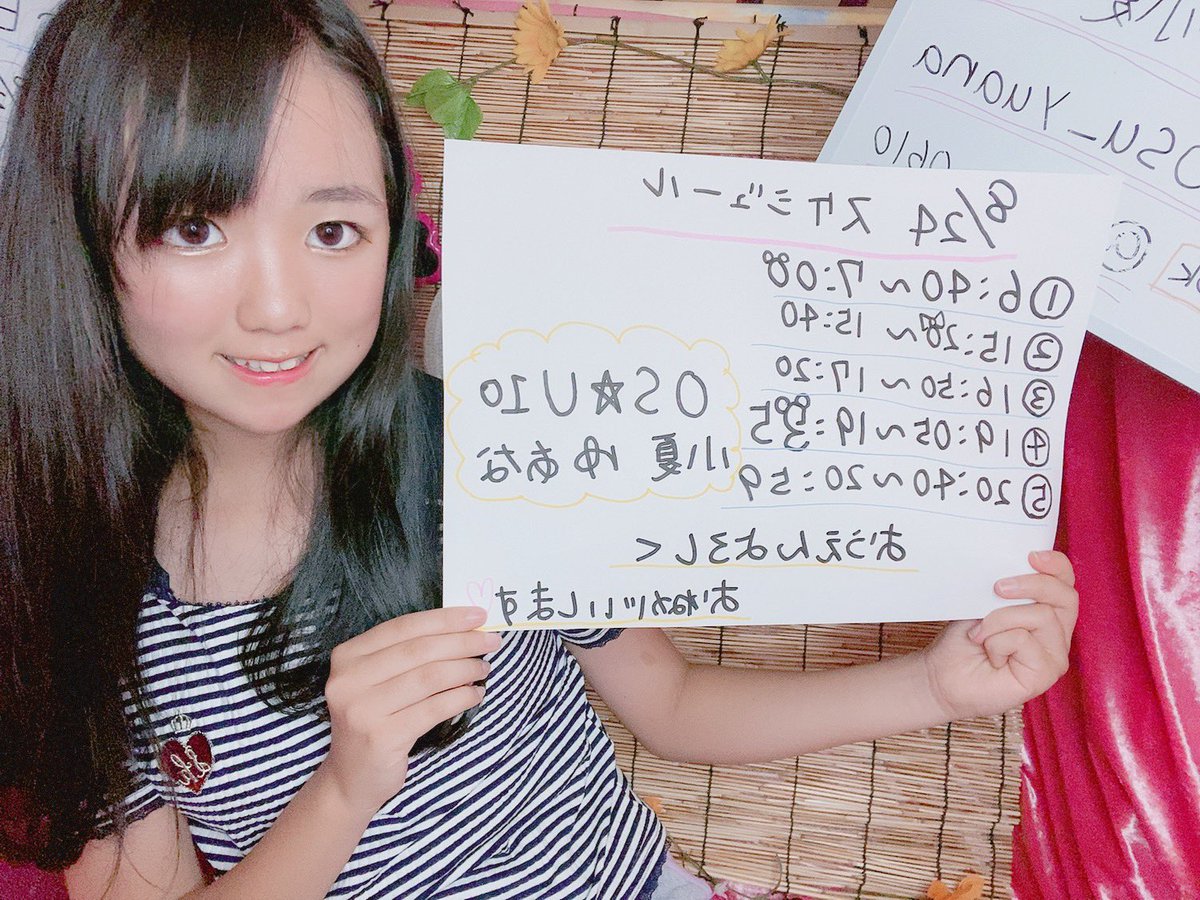 8/24 スケジュール
①6:40～7:00
②15:20～15:40
③16:50～17:20
④19:05～19:35
⑤20:40～20:59
OS☆U20
小夏 ゆあな
おうえんよろしく
おねがいします♡
OSU_Yuana